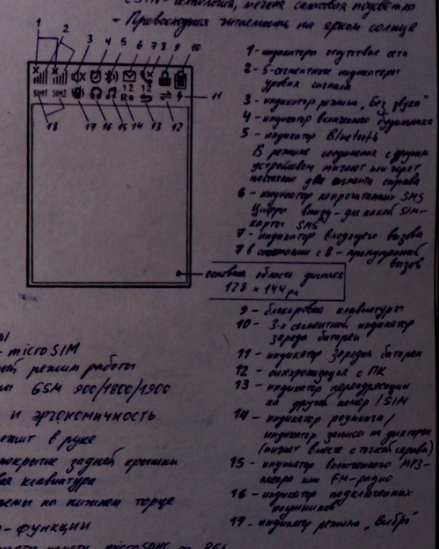 - Превосходная читаемость на ярком солнце
1 2 3 4 5 6 7 8 9 10
SIM1 SIM2
12 12
Ro
11
18 17 16 15 14 13 12
1 - индикаторы отсутствие сети
2 - 5-сегментные индикаторы
уровня сигнала
3 - индикатор режима "Без звука"
4 - индикатор включенного будильника
5 - индикатор Bluetooth
В режиме соединения с другим
устройством мигают или горят
постоянно два сегмента справа
6 - индикатор непрочитанных SMS
Цифры внизу - для какой SIM-
карты SMS
7 - индикатор входящего вызова
7 в сочетании с 8 - пропущенный
вызов
основная область дисплея
128 × 144 px
9 - блокировка клавиатуры
10 - 3-х сегментный индикатор
заряда батареи
11 - индикатор зарядки батареи
12 - синхронизация с ПК
13 - индикатор переадресации
на другой номер / SIM
14 - индикатор роуминга /
индикатор записи на диктофон
(мигает вместе с точкой справа)
15 - индикатор включенного MP3-
плеера или FM-радио
16 - индикатор подключенных
наушников
17 - индикатор режима "Вибро"
- microSIM
режим работы
GSM 900/1800/1900
и эргономичность
в руке
покрытие задней крышки
клавиатура
на нижнем торце
- функции